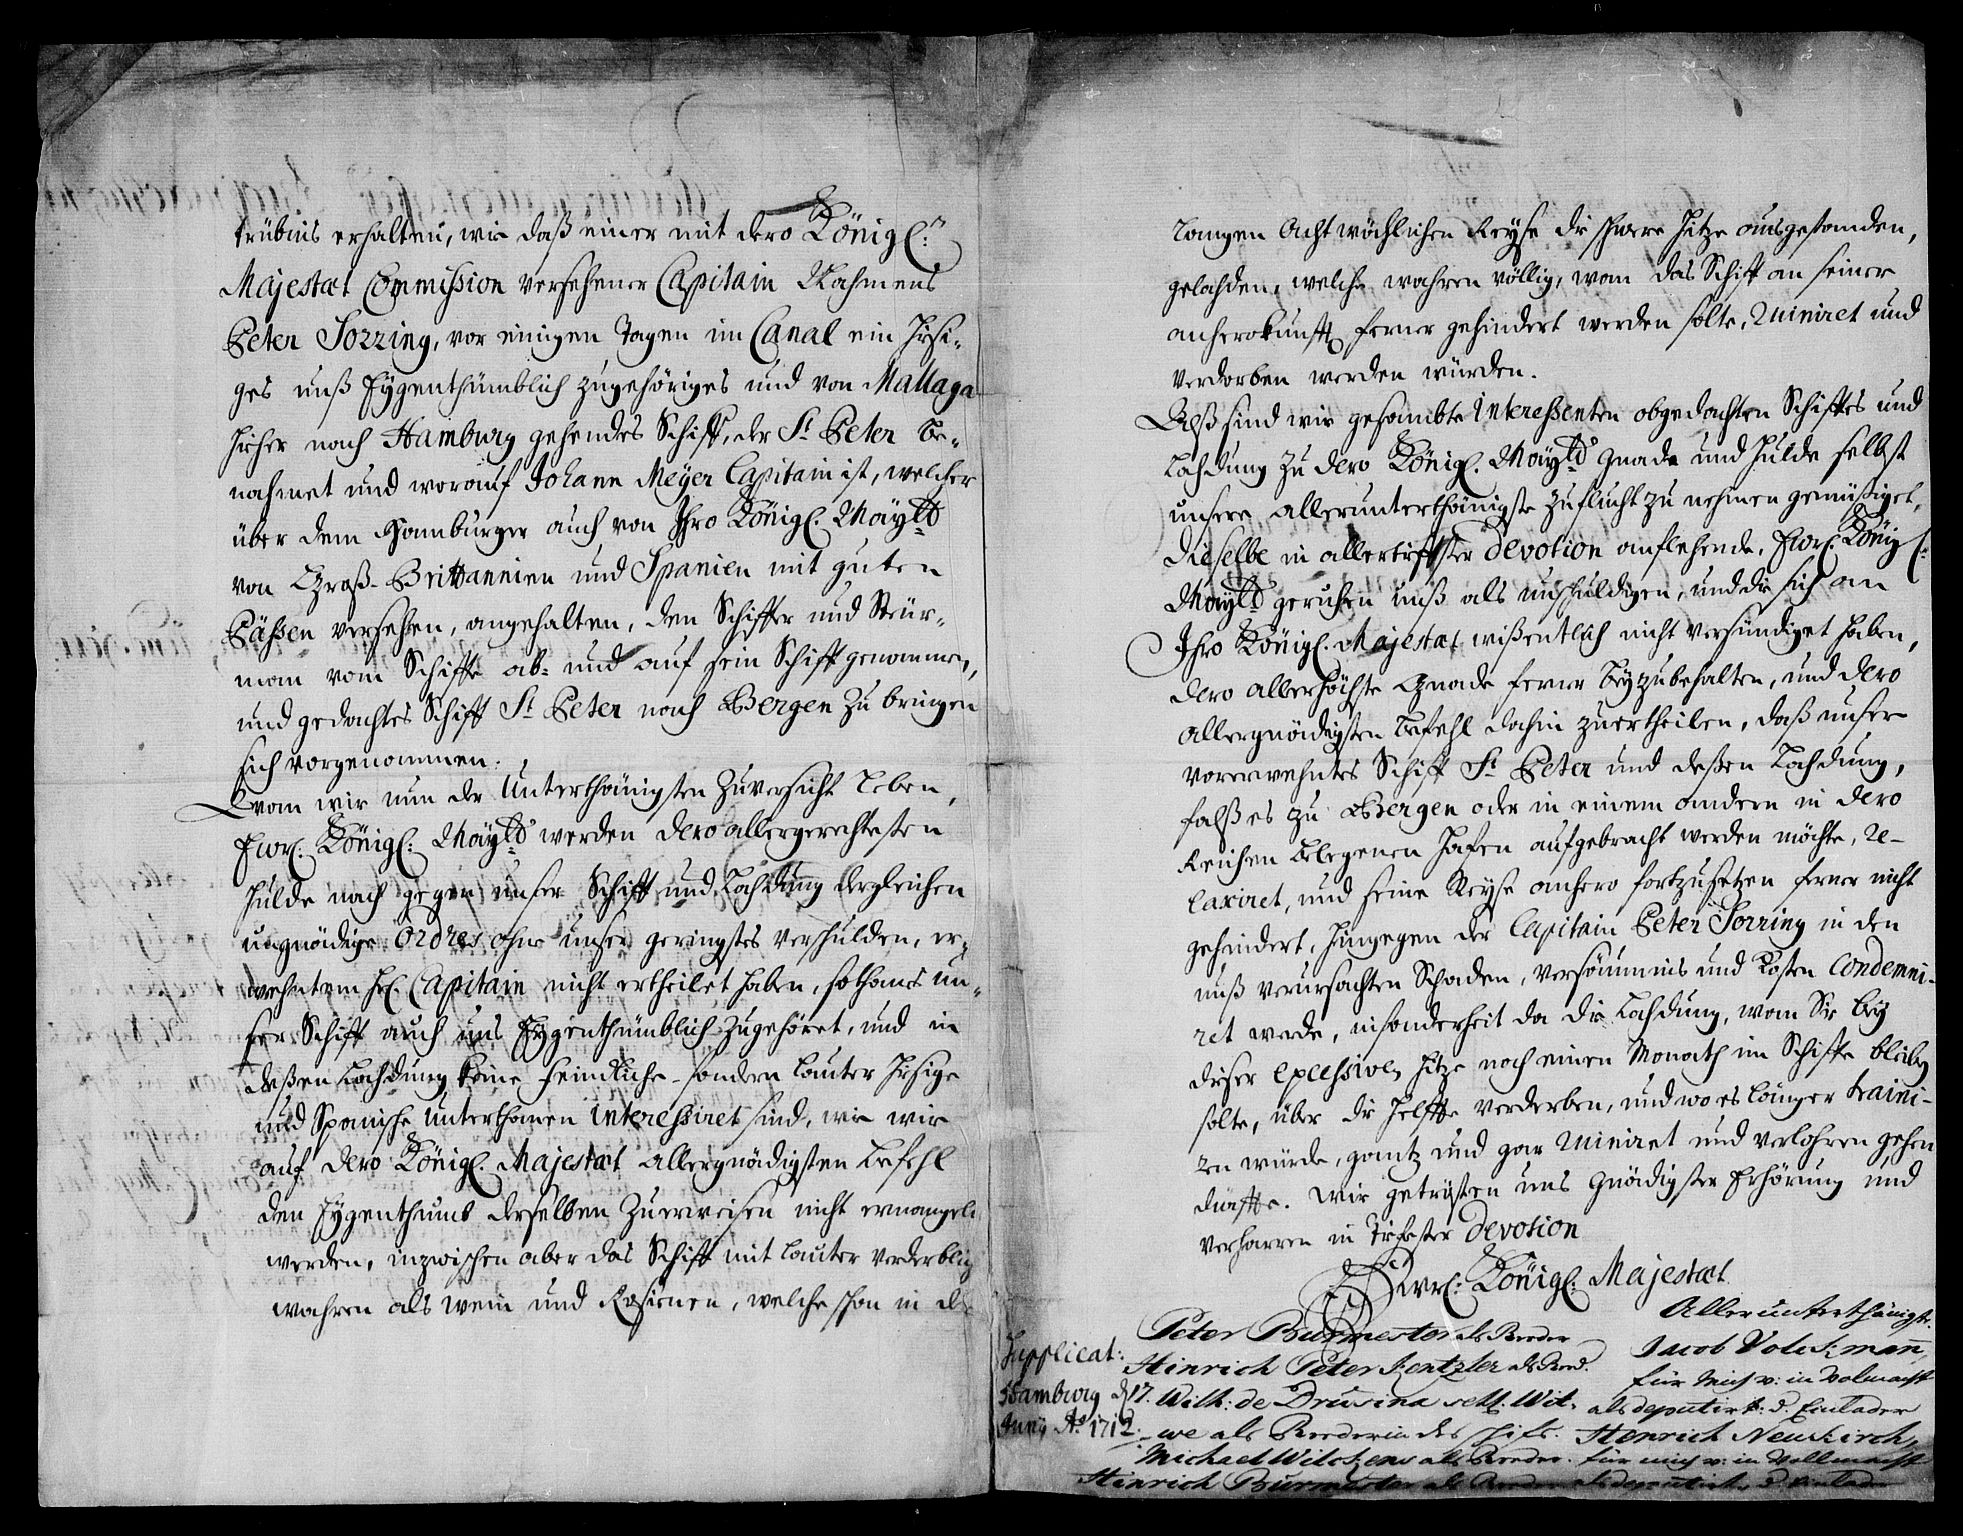 trübnis erhalten, wie daß einer mit dero Königl:
Majestæt Commission versehener Capitain Nahmens
Peter Sorring, vor einigen Tagen im Canal ein hiesi-
ges unß Eygenthümblich zugehöriges und von Mallaga
hieher nach Hamburg gehendes Schiff, der St Peter be-
nahmet und worauf Johann Meyer Capitain ist, welcher
über dem Hamburger auch von Ihro Königl. Mayttt
von Groß-Brittannien und Spanien mit guten
Päßen versehen, angehalten, den Schiffer und Steür-
man vom Schiffe ab- und auf sein Schiff genommen,
und gedachtes Schiff St Peter nach Bergen zu bringen
sich vorgenommen.
Wan wir nun der Unterthänigsten Zuversicht leben,
Ewr. Königl: Maytt werden dero allergerechtesten
Hulde nach gegen unser Schiff und Lachdung dergleichen
ungnädige Ordres ohne unser geringstes verschulden, er-
wehntem H. Capitain nicht ertheilet haben, sothanes un-
ser Schiff auch uns Eygenthümblich zugehöret, und in
deßen Lachdung keine feindliche- sondern lauter hiesige
und Spanische Unterthanen interessiret sind, wie wir
auf dero Königl. Majestæt allergnädigsten Befehl
den Eygenthumb derselben zuerweisen nicht ermangeln
werden, inzwischen aber das Schiff mit lauter verderblich
wahren als Wein und Rosienen, welche schon in der
langen Acht wöchlichen Reyse die schwere Hitze ausgestanden,
gelachden, welche wahren völlig, wan das Schiff an seiner
anherokunfft ferner gehindert werden solte, ruiniret und
verdorben werden würden.
Alß sind wir gesambte Interessenten obgedachten Schiffes und
Lachdung zu dero Königl. Maytt Gnade und Hulde selbst
unsere allerunterthänigste Zuflucht zu nehmen gemüßiget,
dieselbe in allertieffster devotion anflehende, Ewr. Königl:
Maytt geruhen unß als unschuldigen, und die sich an
Ihro Königl. Majestæt wißentlich nicht versündiget haben,
dero allerhöchste Gnade ferner beyzubehalten, und dero
allergnädigsten Befehl dahin zuertheilen, daß unser
vorerwehntes Schiff St Peter und deßen Lachdung,
falß es zu Bergen oder in einem andern in dero
Reichen belegenen Hafen aufgebracht werden möchte, re-
laxiret, und seine Reyse anhero fortzusetzen ferner nicht
gehindert, hingegen der Capitain Peter Sorring in den
unß verursachten Schaden, versäumnis und Kosten Condemni-
ret werde, insonderheit da die Lachdung, wan Sie bey
dieser excessiven Hitze noch einen Monath im Schiffe bleiben
solte, über die Helffte verderben, und wo es länger traini-
ren würde, gantz und gar ruiniret und verlohren gehen
dürffte. Wir getrösten uns Gnädigster Erhörung und
verharren in Tiefester devotion
Ewr: Königl: Majestæt
Allerunterthänigste.
Supplicat:
Hamburg d 17.
Juny Ao 1712.
Peter Burmester als Reeder
Hinrich Peter Rentzler als Reed.
Wilh: de Drusina seel. Wit-
we als Reederin des schifs.
Michael Wilckens als Reeder.
Hinrich Burmester als Reeder
Jacob Volckmann,
für Mich v: in Volmacht
als deputirt: d. Einlader
Henrich Neuskirch,
für mich v: in Vollmacht
als deputirter d. Einlader